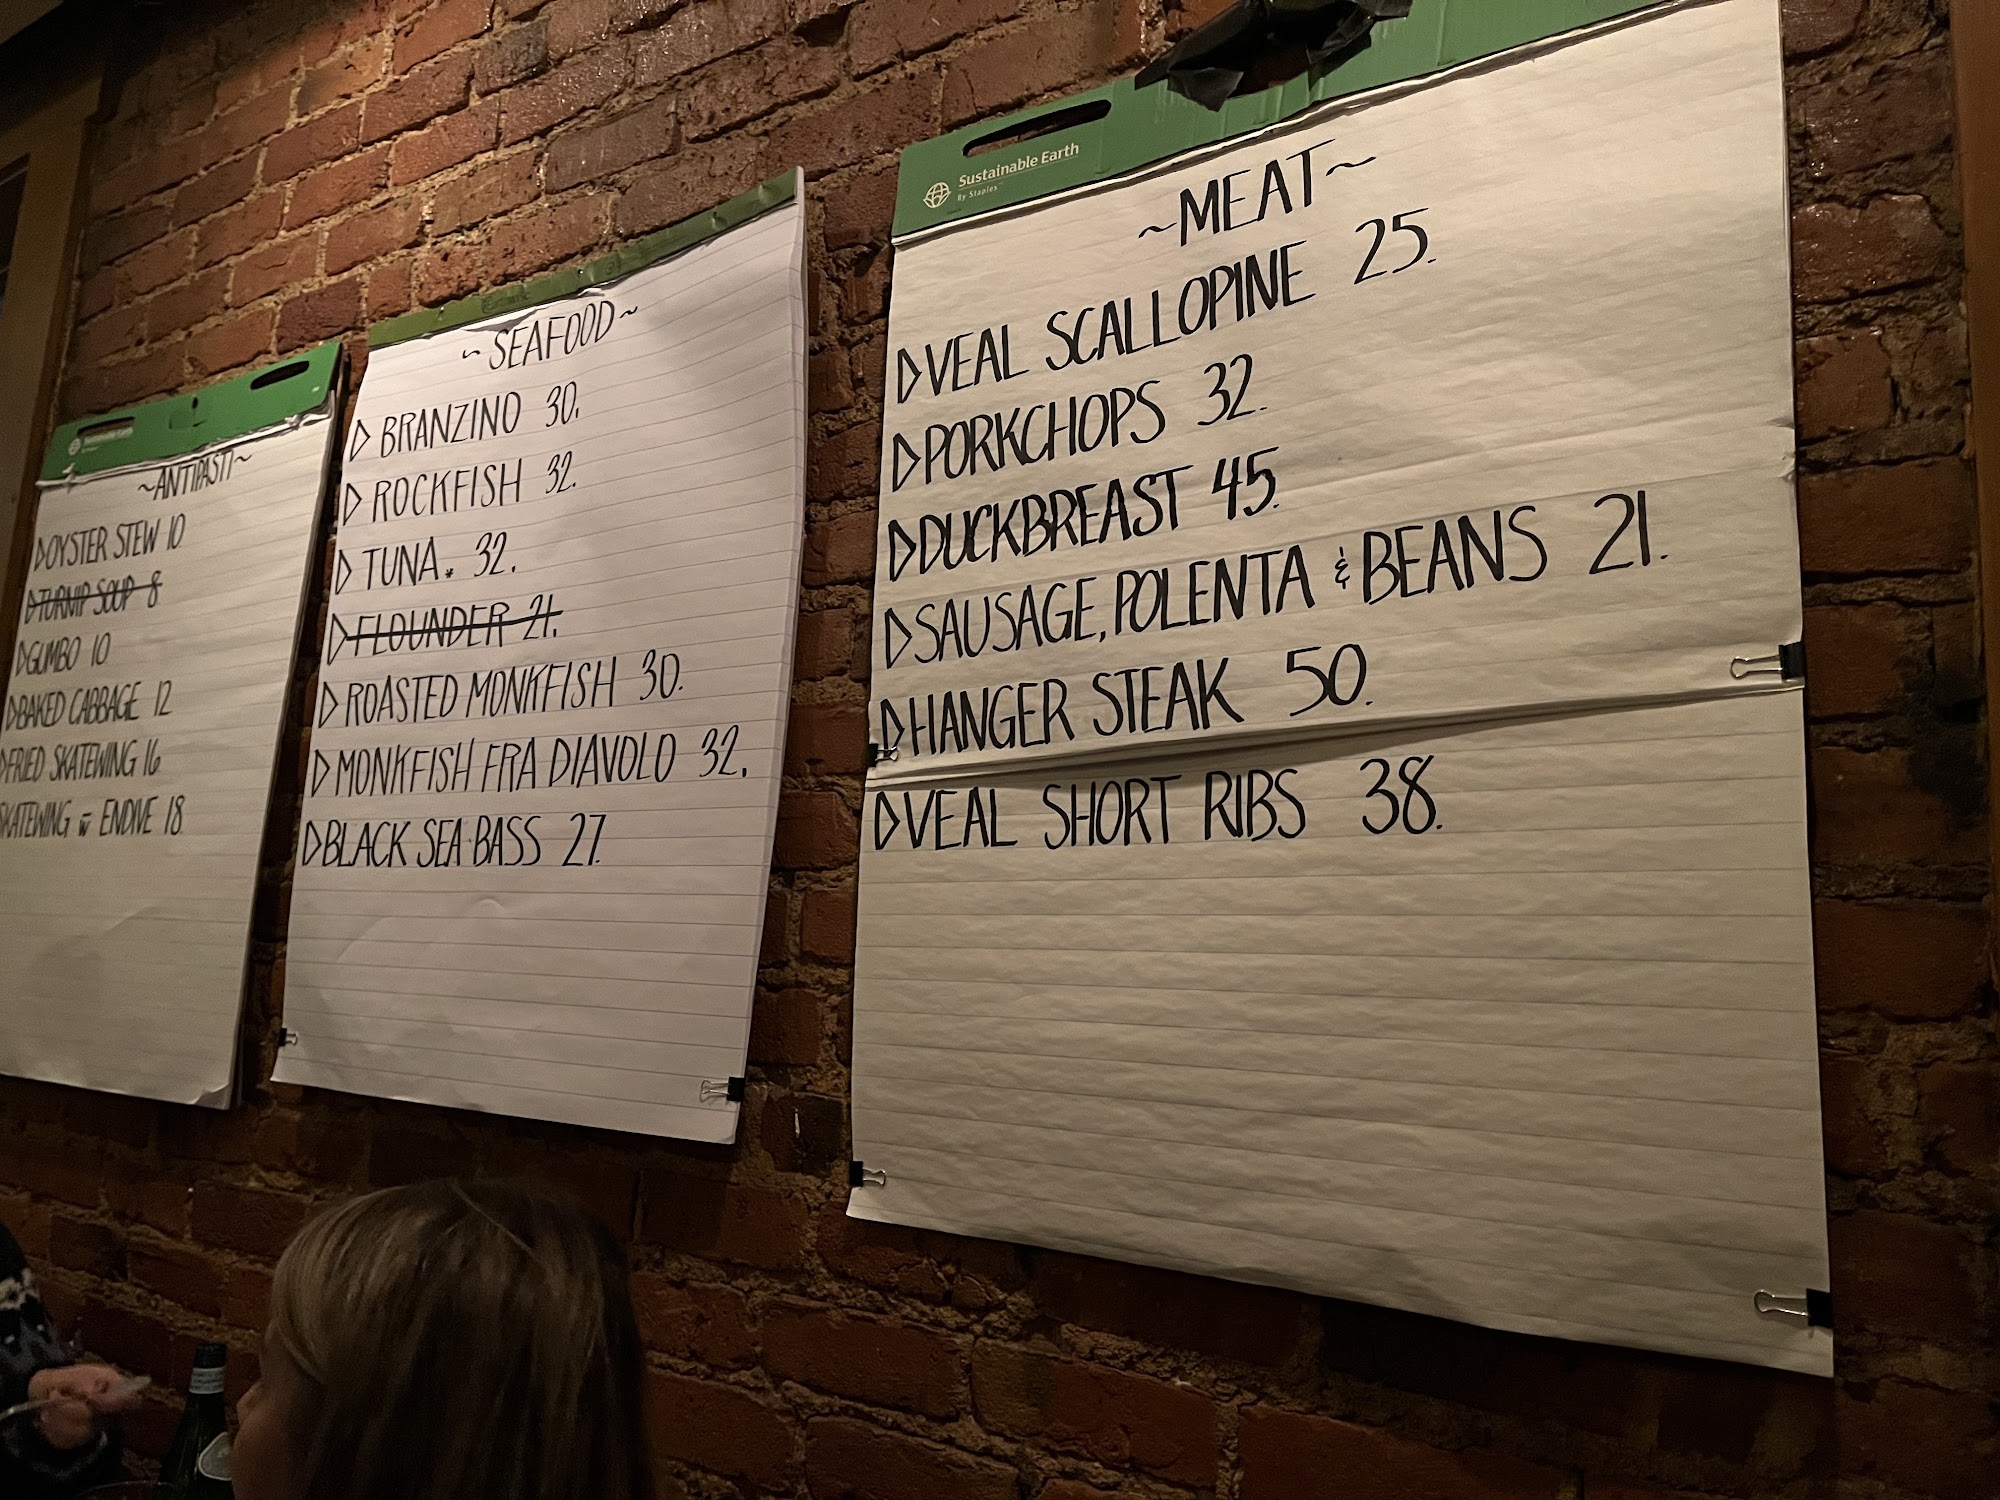 ~ANTIPASTI~
OYSTER STEW 10
TURNIP SOUP 8
GUMBO 10
BAKED CABBAGE 12
FRIED SKATEWING 16
SKATEWING w ENDIVE 18
~SEAFOOD~
BRANZINO 30.
ROCKFISH 32.
TUNA. 32.
FLOUNDER 21.
ROASTED MONKFISH 30.
MONKFISH FRA DIAVOLO 32.
BLACK SEA BASS 27.
Sustainable Earth
By Staples
~MEAT~
VEAL SCALLOPINE 25.
PORKCHOPS 32.
DUCKBREAST 45.
SAUSAGE, POLENTA & BEANS 21.
HANGER STEAK 50.
VEAL SHORT RIBS 38.